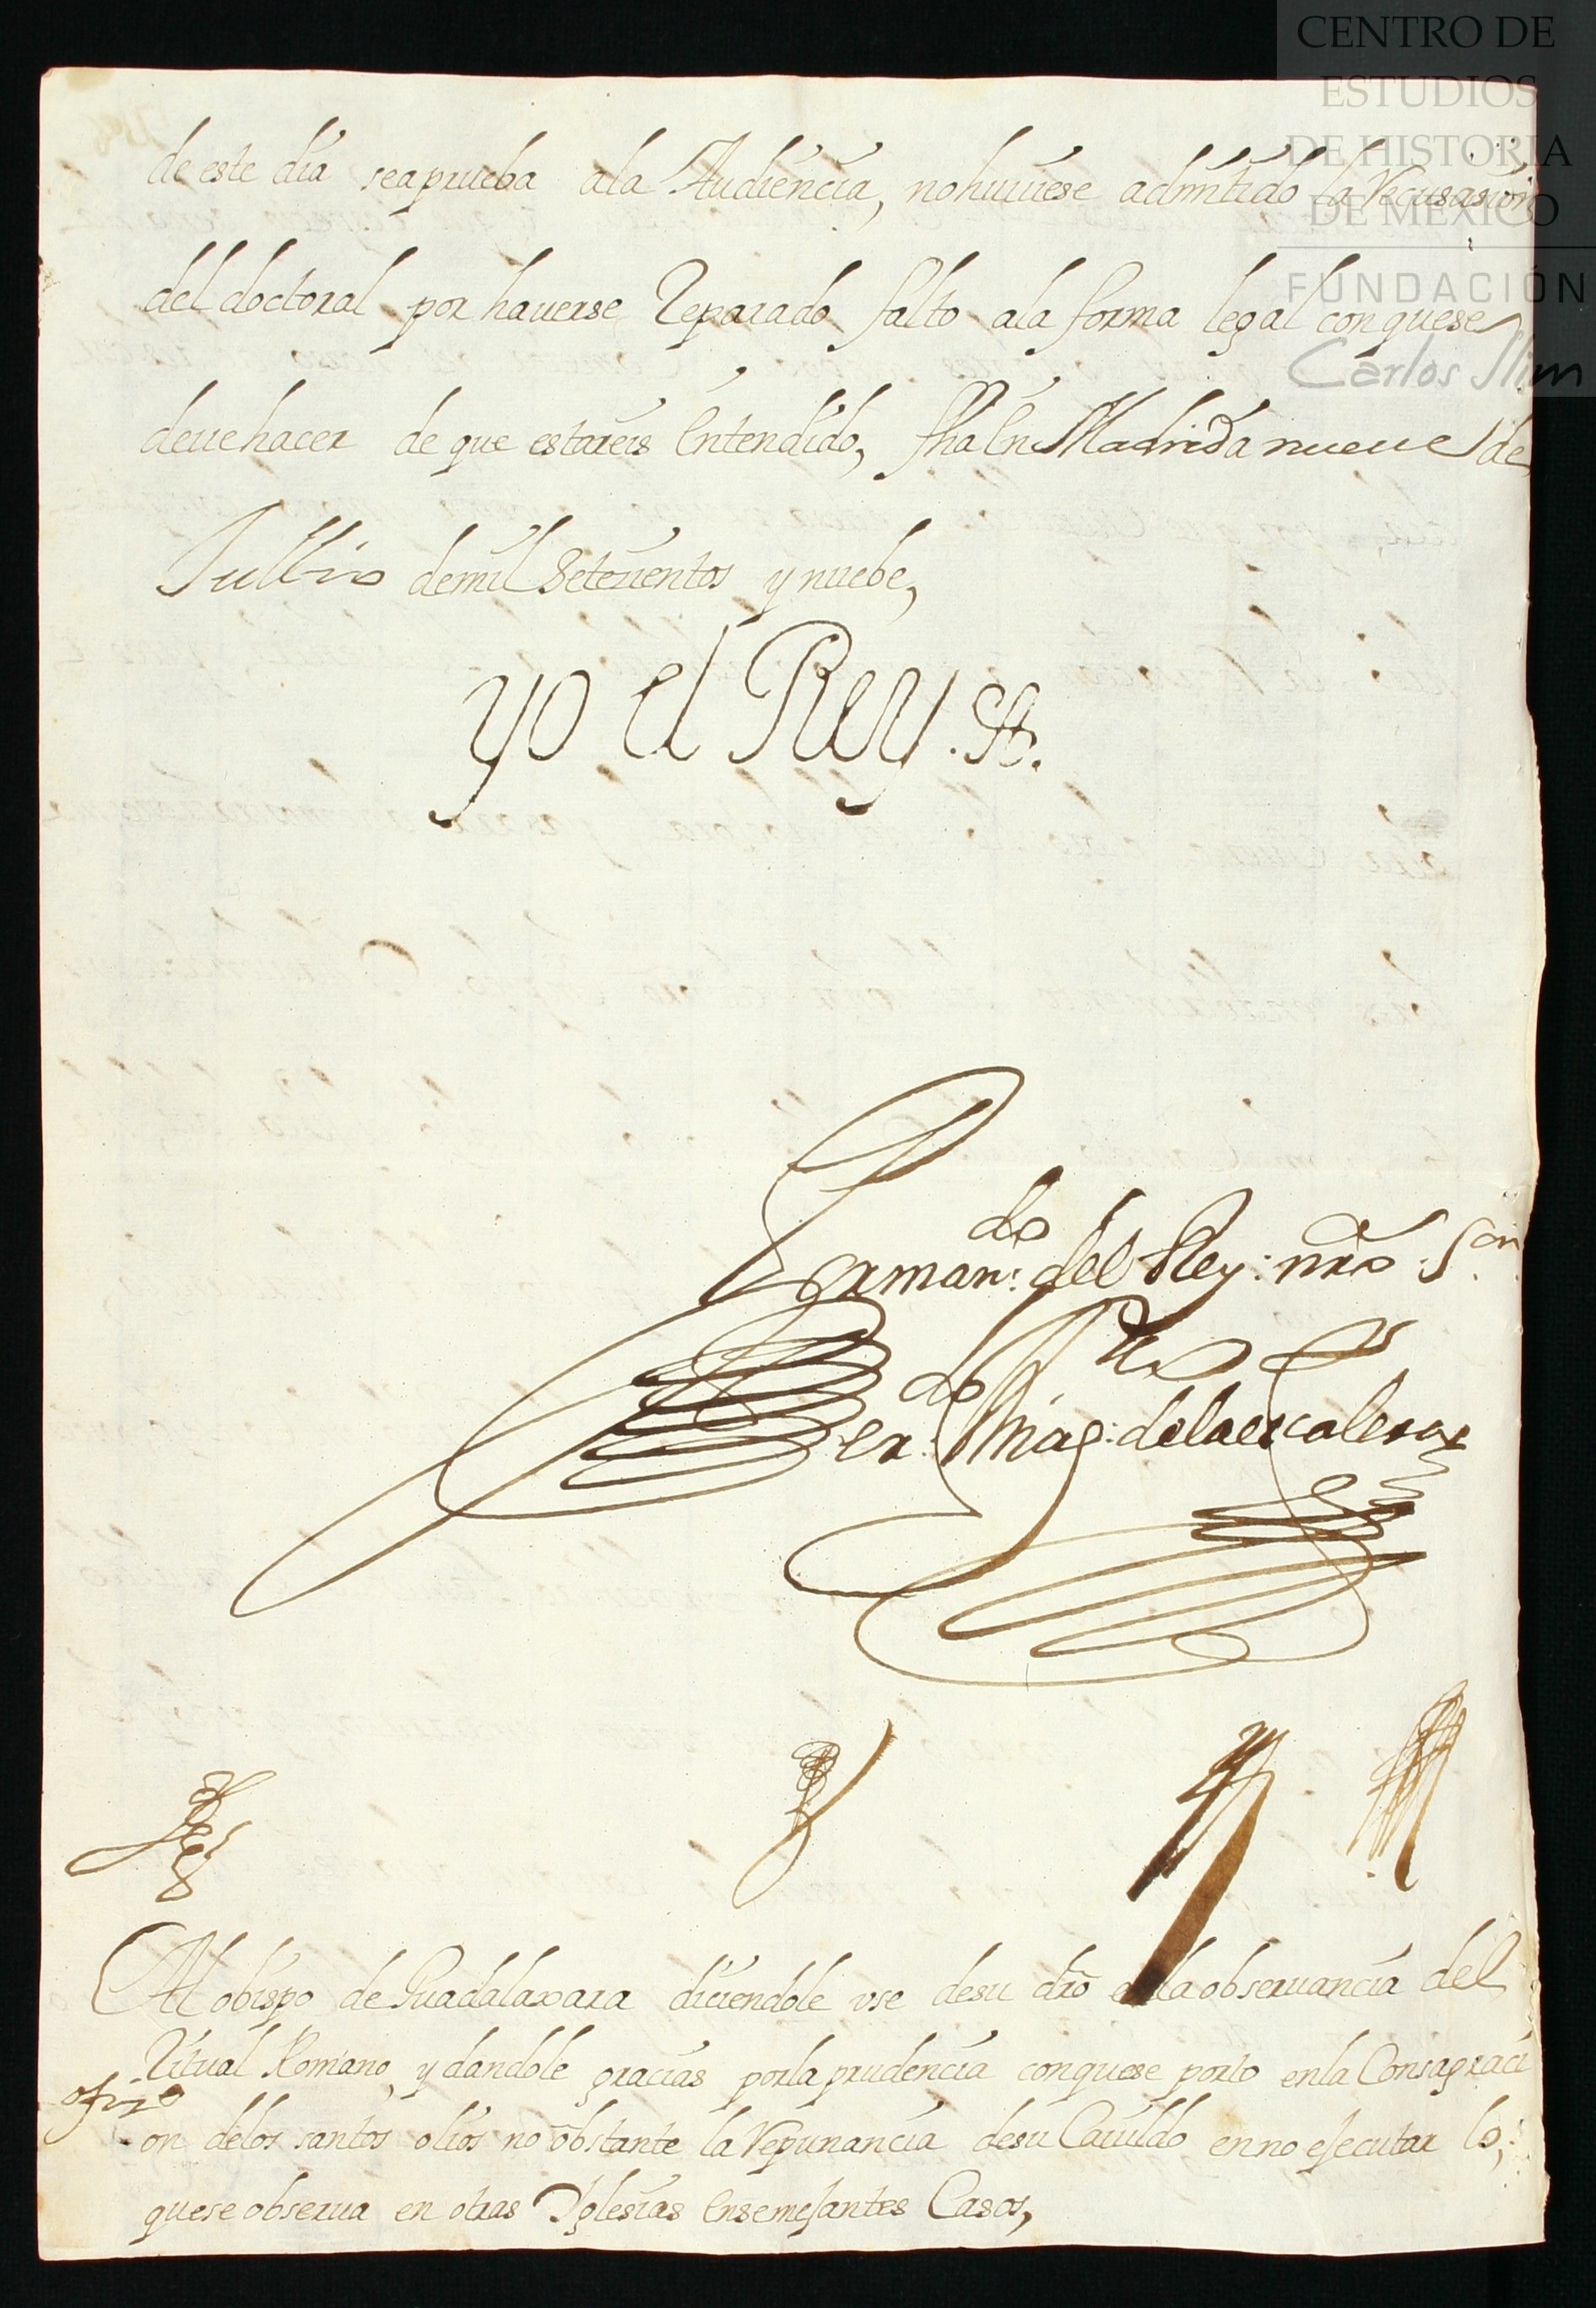 CENTRO DE
ESTUDIOS
DE HISTORIA
DE MÉXICO
FUNDACIÓN
Carlos Slim
de este dia seaprueba ala Audiencia, nohuuiese admitido la Recusasion
del doctoral por hauerse Reparado falto ala forma legal conquese
deuehacer de que estareis Entendido, fha En Madrid a nueue de
Jullio demil Setezientos y nuebe,
yo el Rey
Por mando. del Rey: nro Sor.
Berdo. de la escalera
Al obispo de Guadalaxara diciendole vse desu dro en la obseruancia del
Ritual Romano, y dandole gracias porla prudencia conquese porto enla Consagraci
ofizo
on delos santos olios no obstante la Repunancia desu Cauildo enno ejecutar lo,
quese obserua en otras Yglesias Ensemejantes Casos,